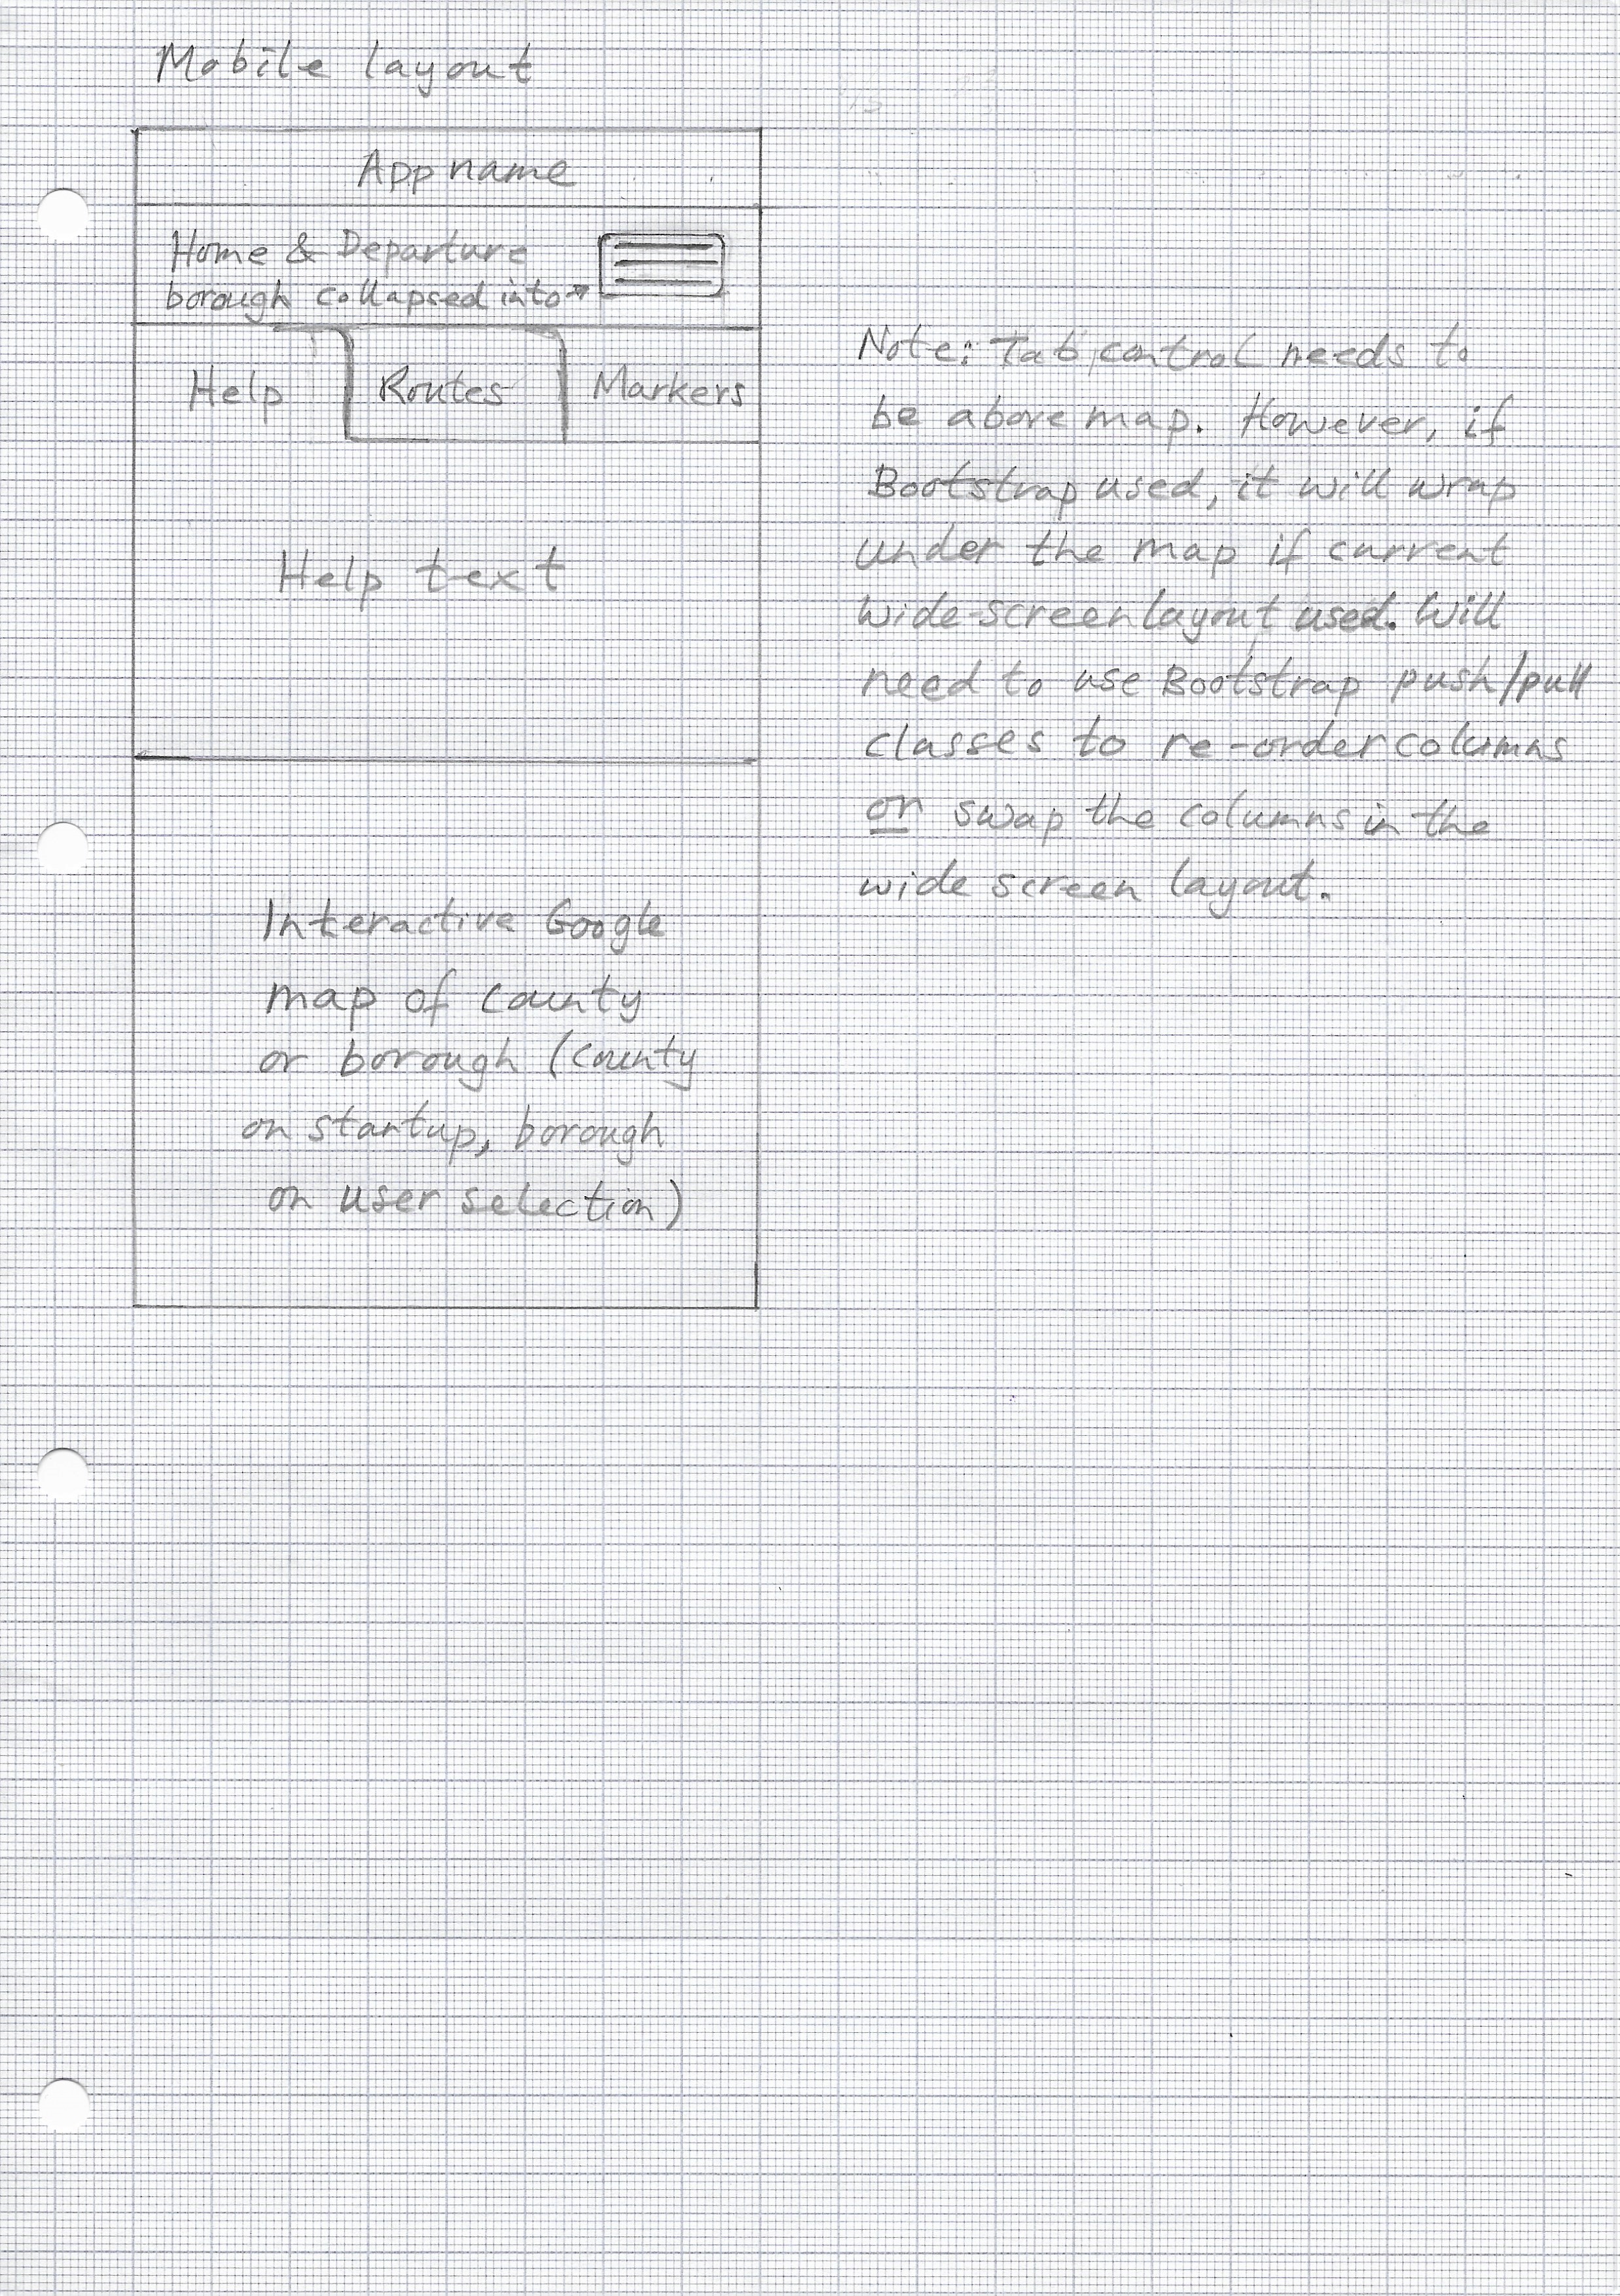 Mobile layout
App name
Home & Departure
borough collapsed into
Help Routes Markers
Help text
Interactive Google
map of county
or borough (county
on startup, borough
on user selection)
Note: Tab control needs to
be above map. However, if
Bootstrap used, it will wrap
under the map if current
wide-screen layout used. Will
need to use Bootstrap push/pull
classes to re-order columns
or swap the columns in the
wide screen layout.